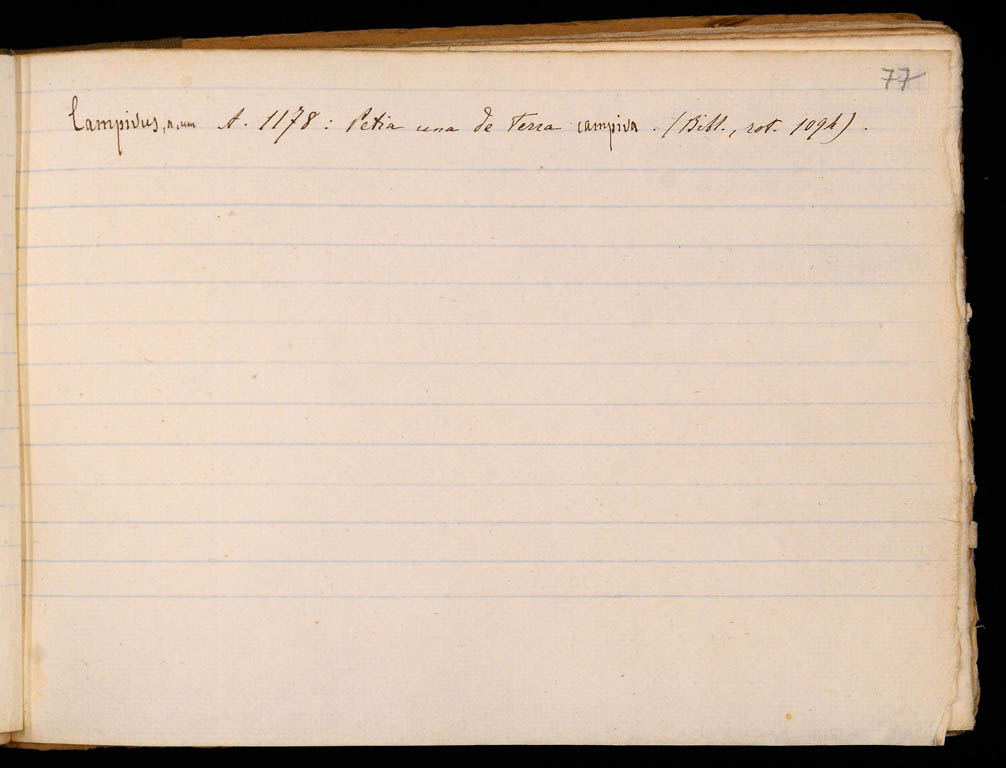 77
Campivus, a, um A. 1178: Petia una de terra campiva. (Bibl., rot. 1094).